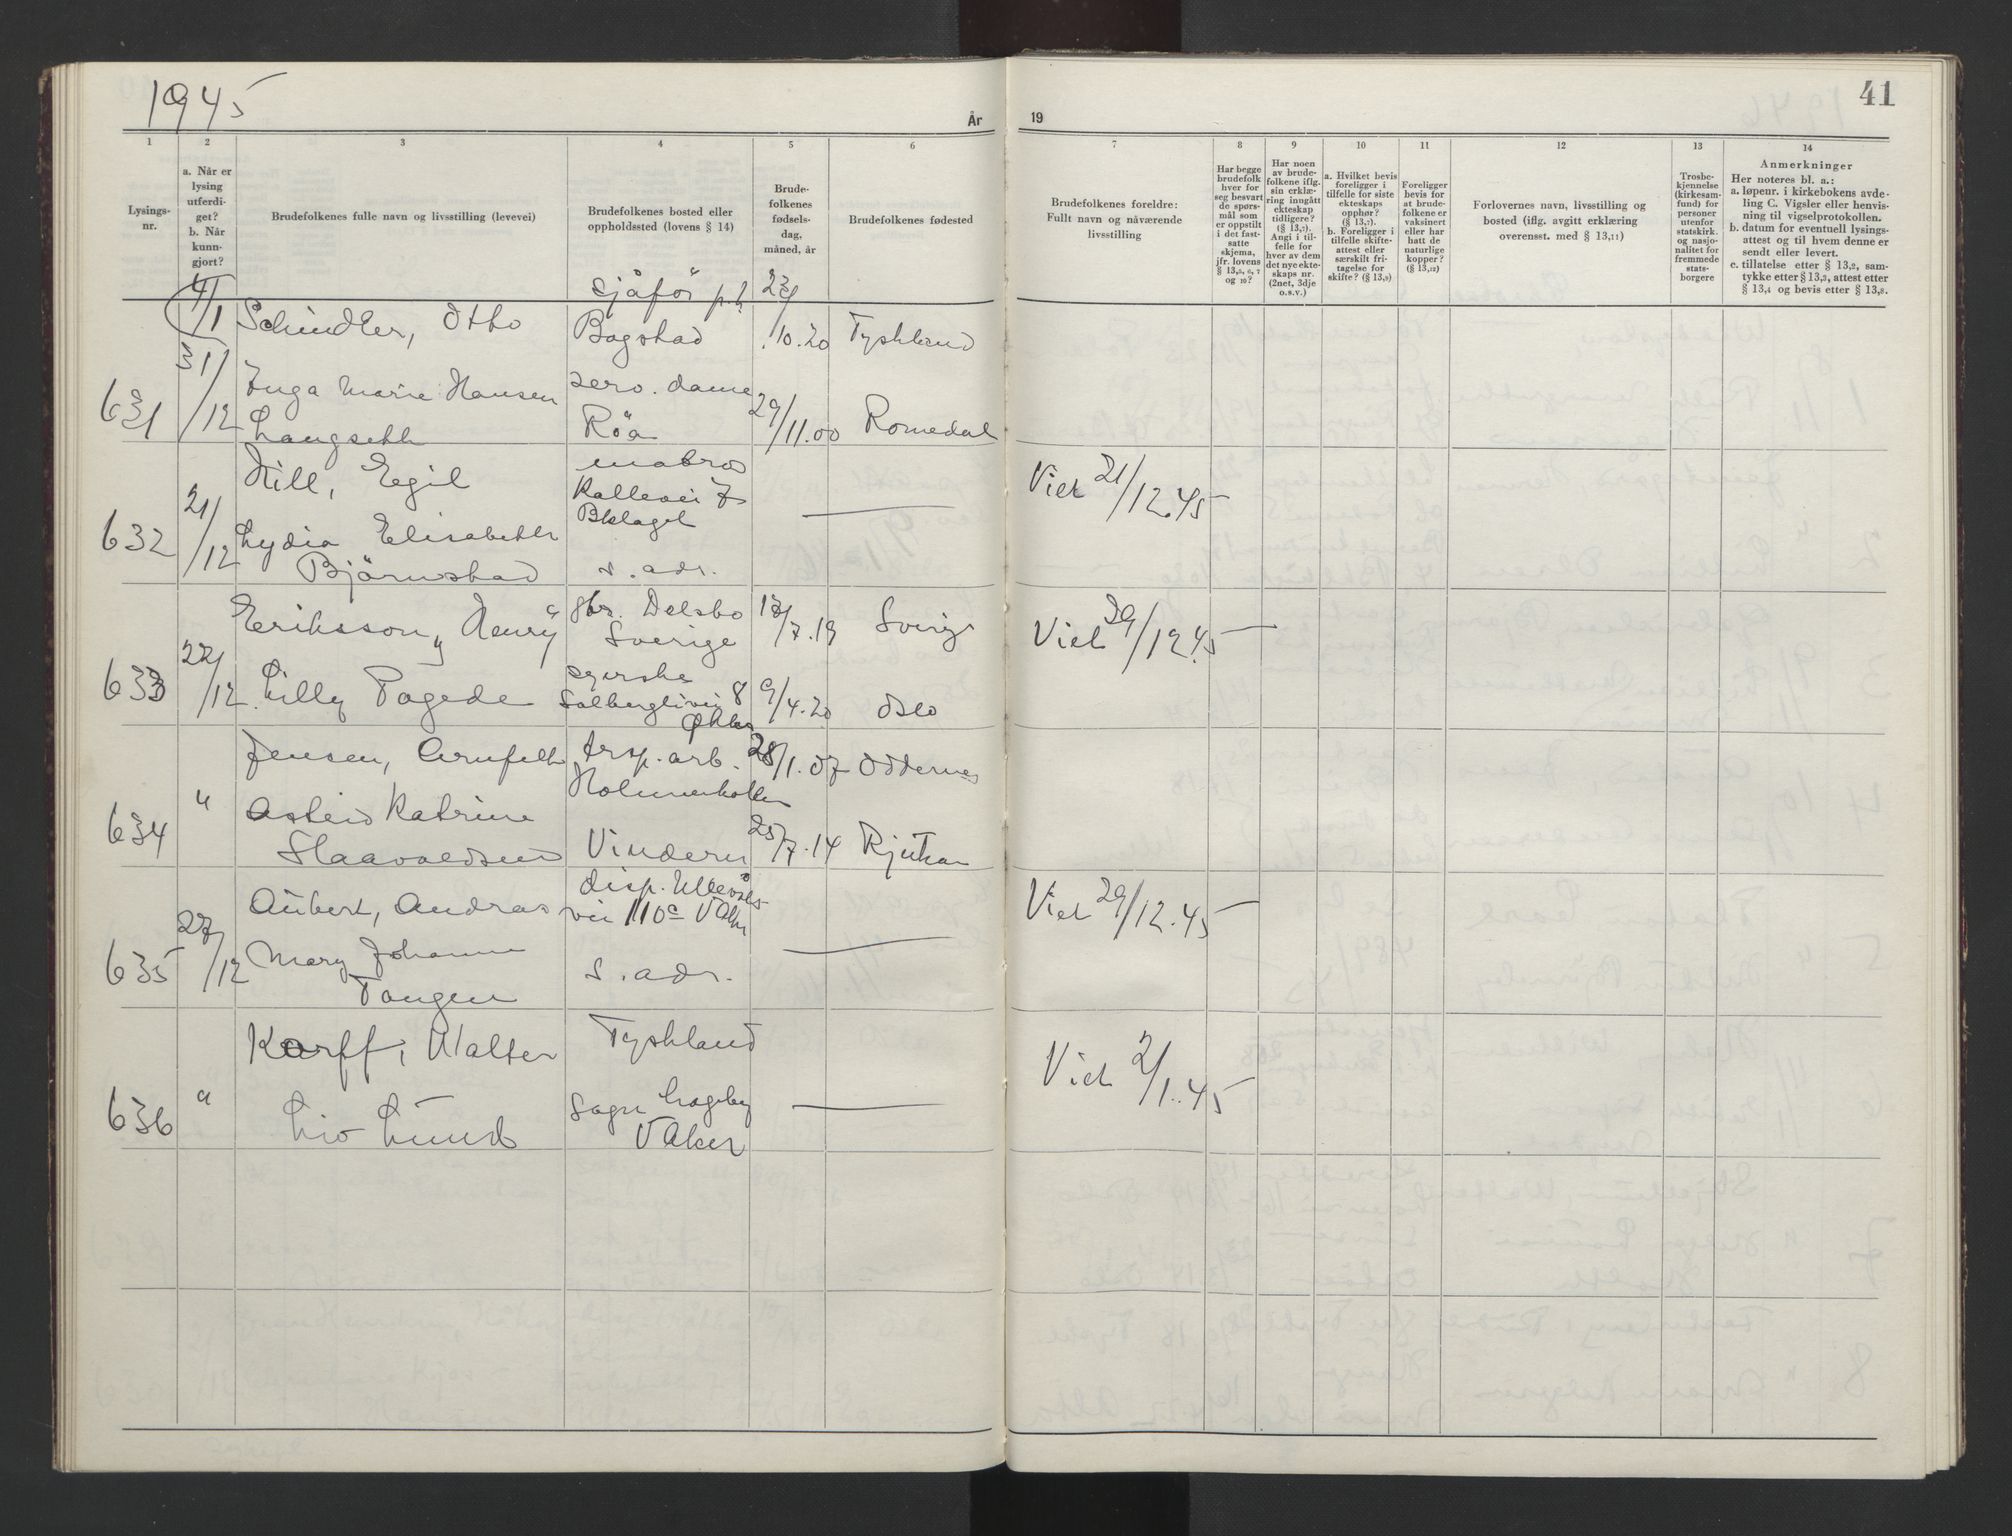 1945
År
19
41
1
2
3
4
5
6
7
8
9
10
11
12
13
14
Lysings-
nr.
a. Når er
lysing
utferdi-
get?
b. Når
kunn-
gjort?
Brudefolkenes fulle navn og livsstilling (levevei)
Brudefolkenes bosted eller
oppholdssted (lovens § 14)
Brude-
folkenes
fødsels-
dag,
måned, år
Brudefolkenes fødested
Brudefolkenes foreldre:
Fullt navn og nåværende
livsstilling
Har begge
brudefolk
hver for
seg besvart
de spørs-
mål som
er oppstilt
i det fast-
satte
skjema,
jfr. lovens
§ 13,5, 6, 7
og 10?
Har noen
av brude-
folkene iflg.
sin erklæ-
ring inngått
ekteskap
tidligere?
(§ 13,7).
Angi i til-
felle for
hver av dem
det nye ekte-
skaps nr.
(2net, 3dje
o.s.v.)
a. Hvilket bevis
foreligger i
tilfelle for siste
ekteskaps
opphør?
(§ 13,7).
b. Foreligger i
tilfelle skifte-
attest eller
særskilt fri-
tagelse for
skifte? (§ 13,9)
Foreligger
bevis for
at brude-
folkene er
vaksinert
eller har
hatt de
naturlige
kopper?
(§ 13,12)
Forlovernes navn, livsstilling og
bosted (iflg. avgitt erklæring
overensst. med § 13,11)
Trosbe-
kjennelse
(kirkesam-
fund) for
personer
utenfor
statskirk.
og nasjo-
nalitet for
fremmede
stats-
borgere
Anmerkninger
Her noteres bl. a.:
a. løpenr. i kirkebokens avde-
ling C. Vigsler eller henvis-
ning til vigselprotokollen.
b. datum for eventuell lysings-
attest og til hvem denne er
sendt eller levert.
c. tillatelse etter § 13,2, sam-
tykke etter § 13,3, attest etter
§ 13,4 og bevis etter § 13,8.
4/1 Schindler, Otto sjåfør p.t. Bogstad 23/10.20 Tyskland
631 31/12 Inga Marie Hansen serv. dame 29/11.00 Romedal
Langseth Röa
Hill, Egil
Kallevei 7
632 21/12 Lydia Elisabeth Viet 21/12.45
Björnstad s. adr.
Eriksson, Henry gbr. Delsbo 13/7.19 Sverige
Sverige Viet 29/12.45
633 22/12 Lilly Pagede syerske 9/4.20 Oslo
Solberglivei 8
Jensen, Arnfelt trsp. arb. 28/1.07 Oddernes
Holmenkollen
634 " Astrid Katrine 25/7.14 Rjukan
Haavaldsen Vinderen
Aubert, Andreas disp. Ullevåls-
vei 110a V Aker Viet 29/12.45
635 27/12 Mary Johanne s. adr.
Tangen
Korff, Walter Tyskland Viet 2/1.45
636 " Liv Lund Sogn hageby
V Aker